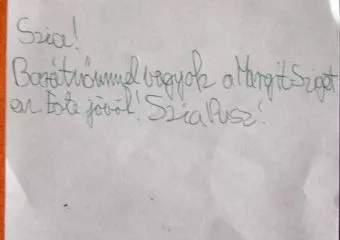 Szia!
Barátnőmmel vagyok a Margit Sziget
en. Este jövök! Szia Pusz!